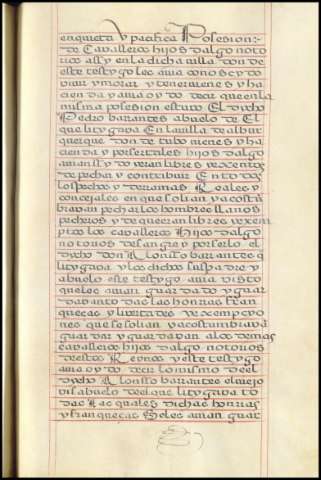 en quieta y pacifica Posesion:-
de Cavalleros hijos dalgo noto
rios assy en la dicha villa don de
este testygo les avia conoscydo
bivir y morar y tener vienes y ha
cienda y avia oydo decir que en la
misma posesion estuvo El dycho
Pedro barrantes abuelo de El
que lityga va En la villa de albur
querque don de tubo vienes y ha
cienda y por ser tales hijos dalgo
avian sydo y veran libres y exentos
de pechar y contribuir En todos
los pechos y derramas Reales y
concejales en que solian y acostu
bravan pechar los hombres llanos
pecheros y de que eran libres y exem
ptos los cavalleros Hijos dalgo
notorios de sangre y por ser lo el
dycho don Alonsso barrantes q
lityga va y los dichos su padre y
abuelo este testygo avia visto
que les avian guardado y guar
davan todas las honrras fran
quecas y livertades y exempcyo
nes que se solian y acostumbrava
guardar y guardavan a los demas
cavalleros hijos dalgo notorios
de estos Reynos y este testygo
avia oydo decir lo mismo de el
dycho Alonsso barrantes el viejo
visabuelo de el que lityga va to
das las quales dichas honrras
y franquecas se les avian guar